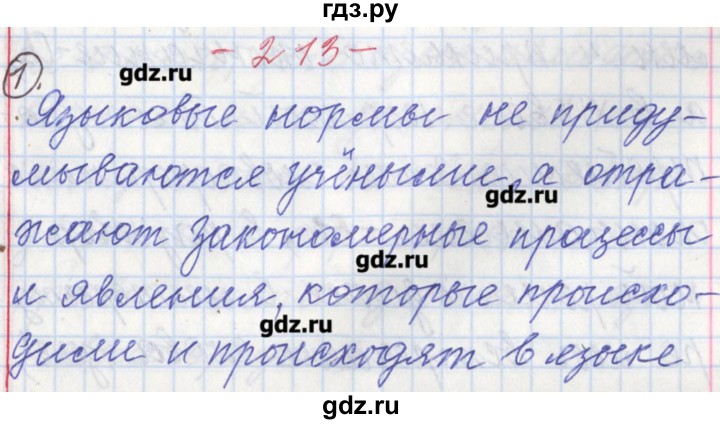 гдз.ру
- 213 -
gdz.ru
1.
Языковые нормы не приду-
мываются учёными, а отра-
gdz.ru
жают закономерные процессы
gdz.ru
и явления, которые происхо-
gdz.ru
дили и происходят в языке
gdz.ru